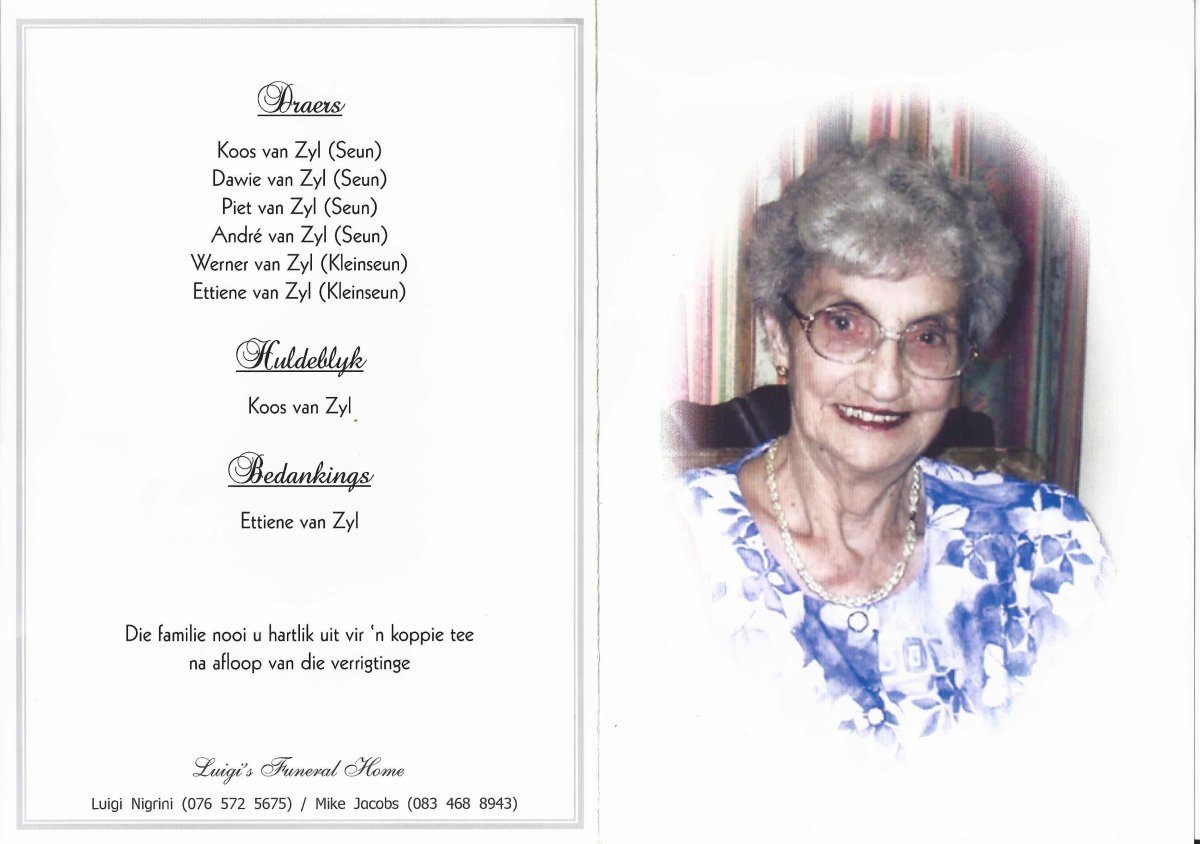 Draers
Koos van Zyl (Seun)
Dawie van Zyl (Seun)
Piet van Zyl (Seun)
André van Zyl (Seun)
Werner van Zyl (Kleinseun)
Ettiene van Zyl (Kleinseun)
Huldeblyk
Koos van Zyl
Bedankings
Ettiene van Zyl
Die familie nooi u hartlik uit vir 'n koppie tee
na afloop van die verrigtinge
Luigi's Funeral Home
Luigi Nigrini (076 572 5675) / Mike Jacobs (083 468 8943)